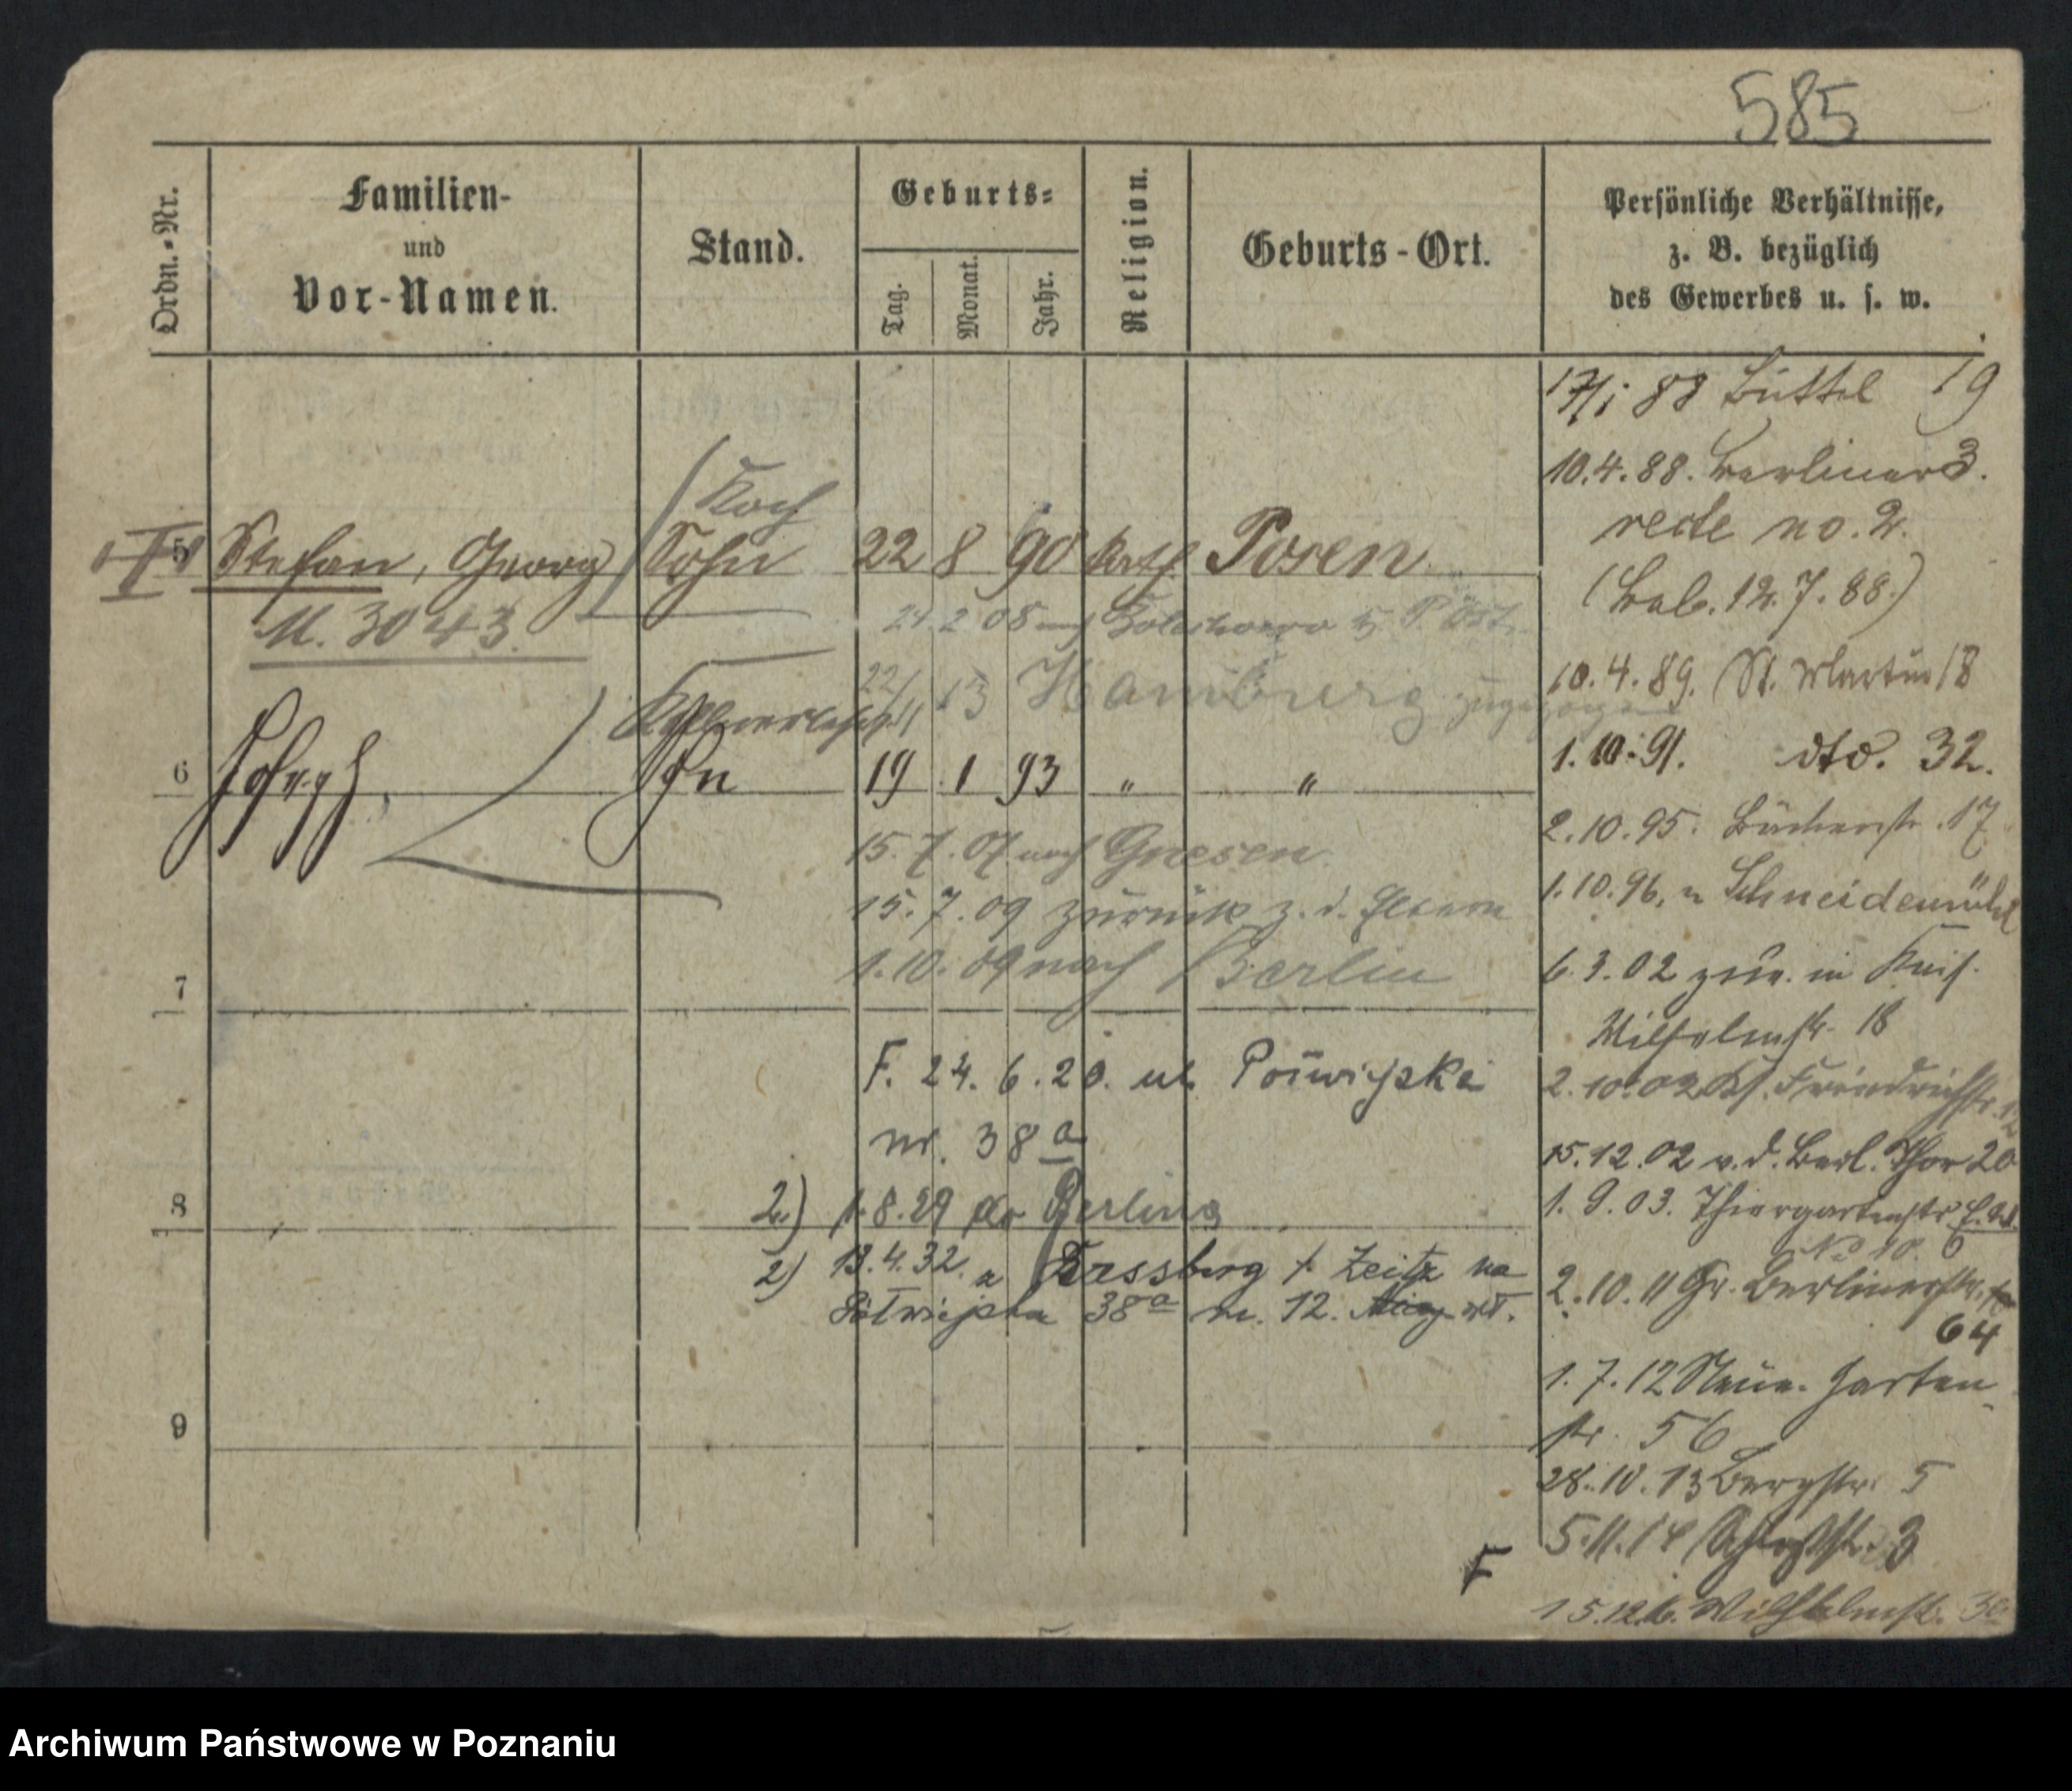 585
Ordn.-Nr.
Familien-
und
Vor-Namen.
Stand.
Geburts-
Tag.
Monat.
Jahr.
Religion.
Geburts-Ort.
Persönliche Verhältnisse,
z. B. bezüglich
des Gewerbes u. s. w.
Koch
5 Stefan, Georg Sohn 22 8 90 kath Posen
M. 3043.
24.2.08 nach
22/11 13 Hamburg
6 Joseph Sohn 19 1 93 " "
15.7.07 nach Gnesen
15.7.09 zurück z. d. Eltern
1.10.09 nach Berlin
7
F. 24.6.20. ul.
nr. 38a
8
2.) 1.8.29 do Berlina
2) 13.4.32. Zeitz na
38a m. 12.
9
17/1 88 Büttel 19
10.4.88. Berliner 3.
recte no. 2.
12.7.88.)
10.4.89. St. Martin 18
1.10.91. dto. 32.
2.10.95. Bäckerstr. 17
1.10.96. n Schneidemühl
6.3.02 zur. in Kais.
Wilhelmstr. 18
2.10.02 Friedrichstr.
15.12.02 v. d. Berl. Thor 20
1.9.03. Thiergartenstr
No 10.
2.10.11 Gr. Berlinerstr.
64
1.7.12 Neue Garten-
str. 56
28.10.13 Bergstr. 5
5.11.14 Schloßstr. 3
F
Wilhelmstr.
Archiwum Państwowe w Poznaniu